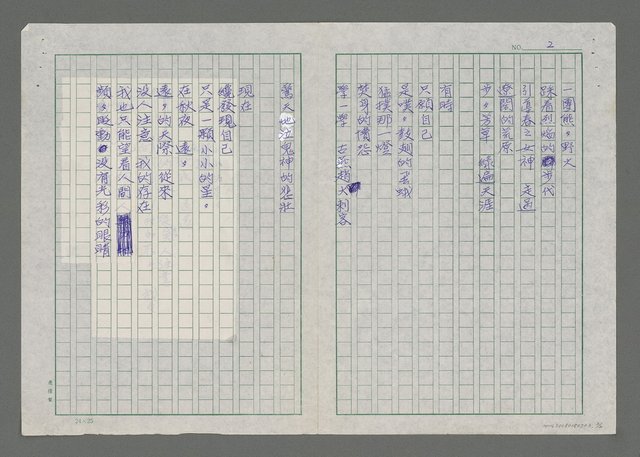 NO. 2
一團熊々野火
踩着烈焰的步伐
引導春之女神 走過
遼闊的荒原
步々芳草 綠遍天涯
有時
只願自己
是噗々鼓翅的蛋蛾
猛撲那一燈
焚身的慘恐
學一學 古燕趙大刺客
驚天地泣鬼神的悲壯
現在
纔發現自己
只是一顆小小的星。
在秋夜 遠々
遠々的天際 從來
沒人注意 我的存在
我也只能望着人間
頻々眨動 沒有光彩的眼睛
24×25